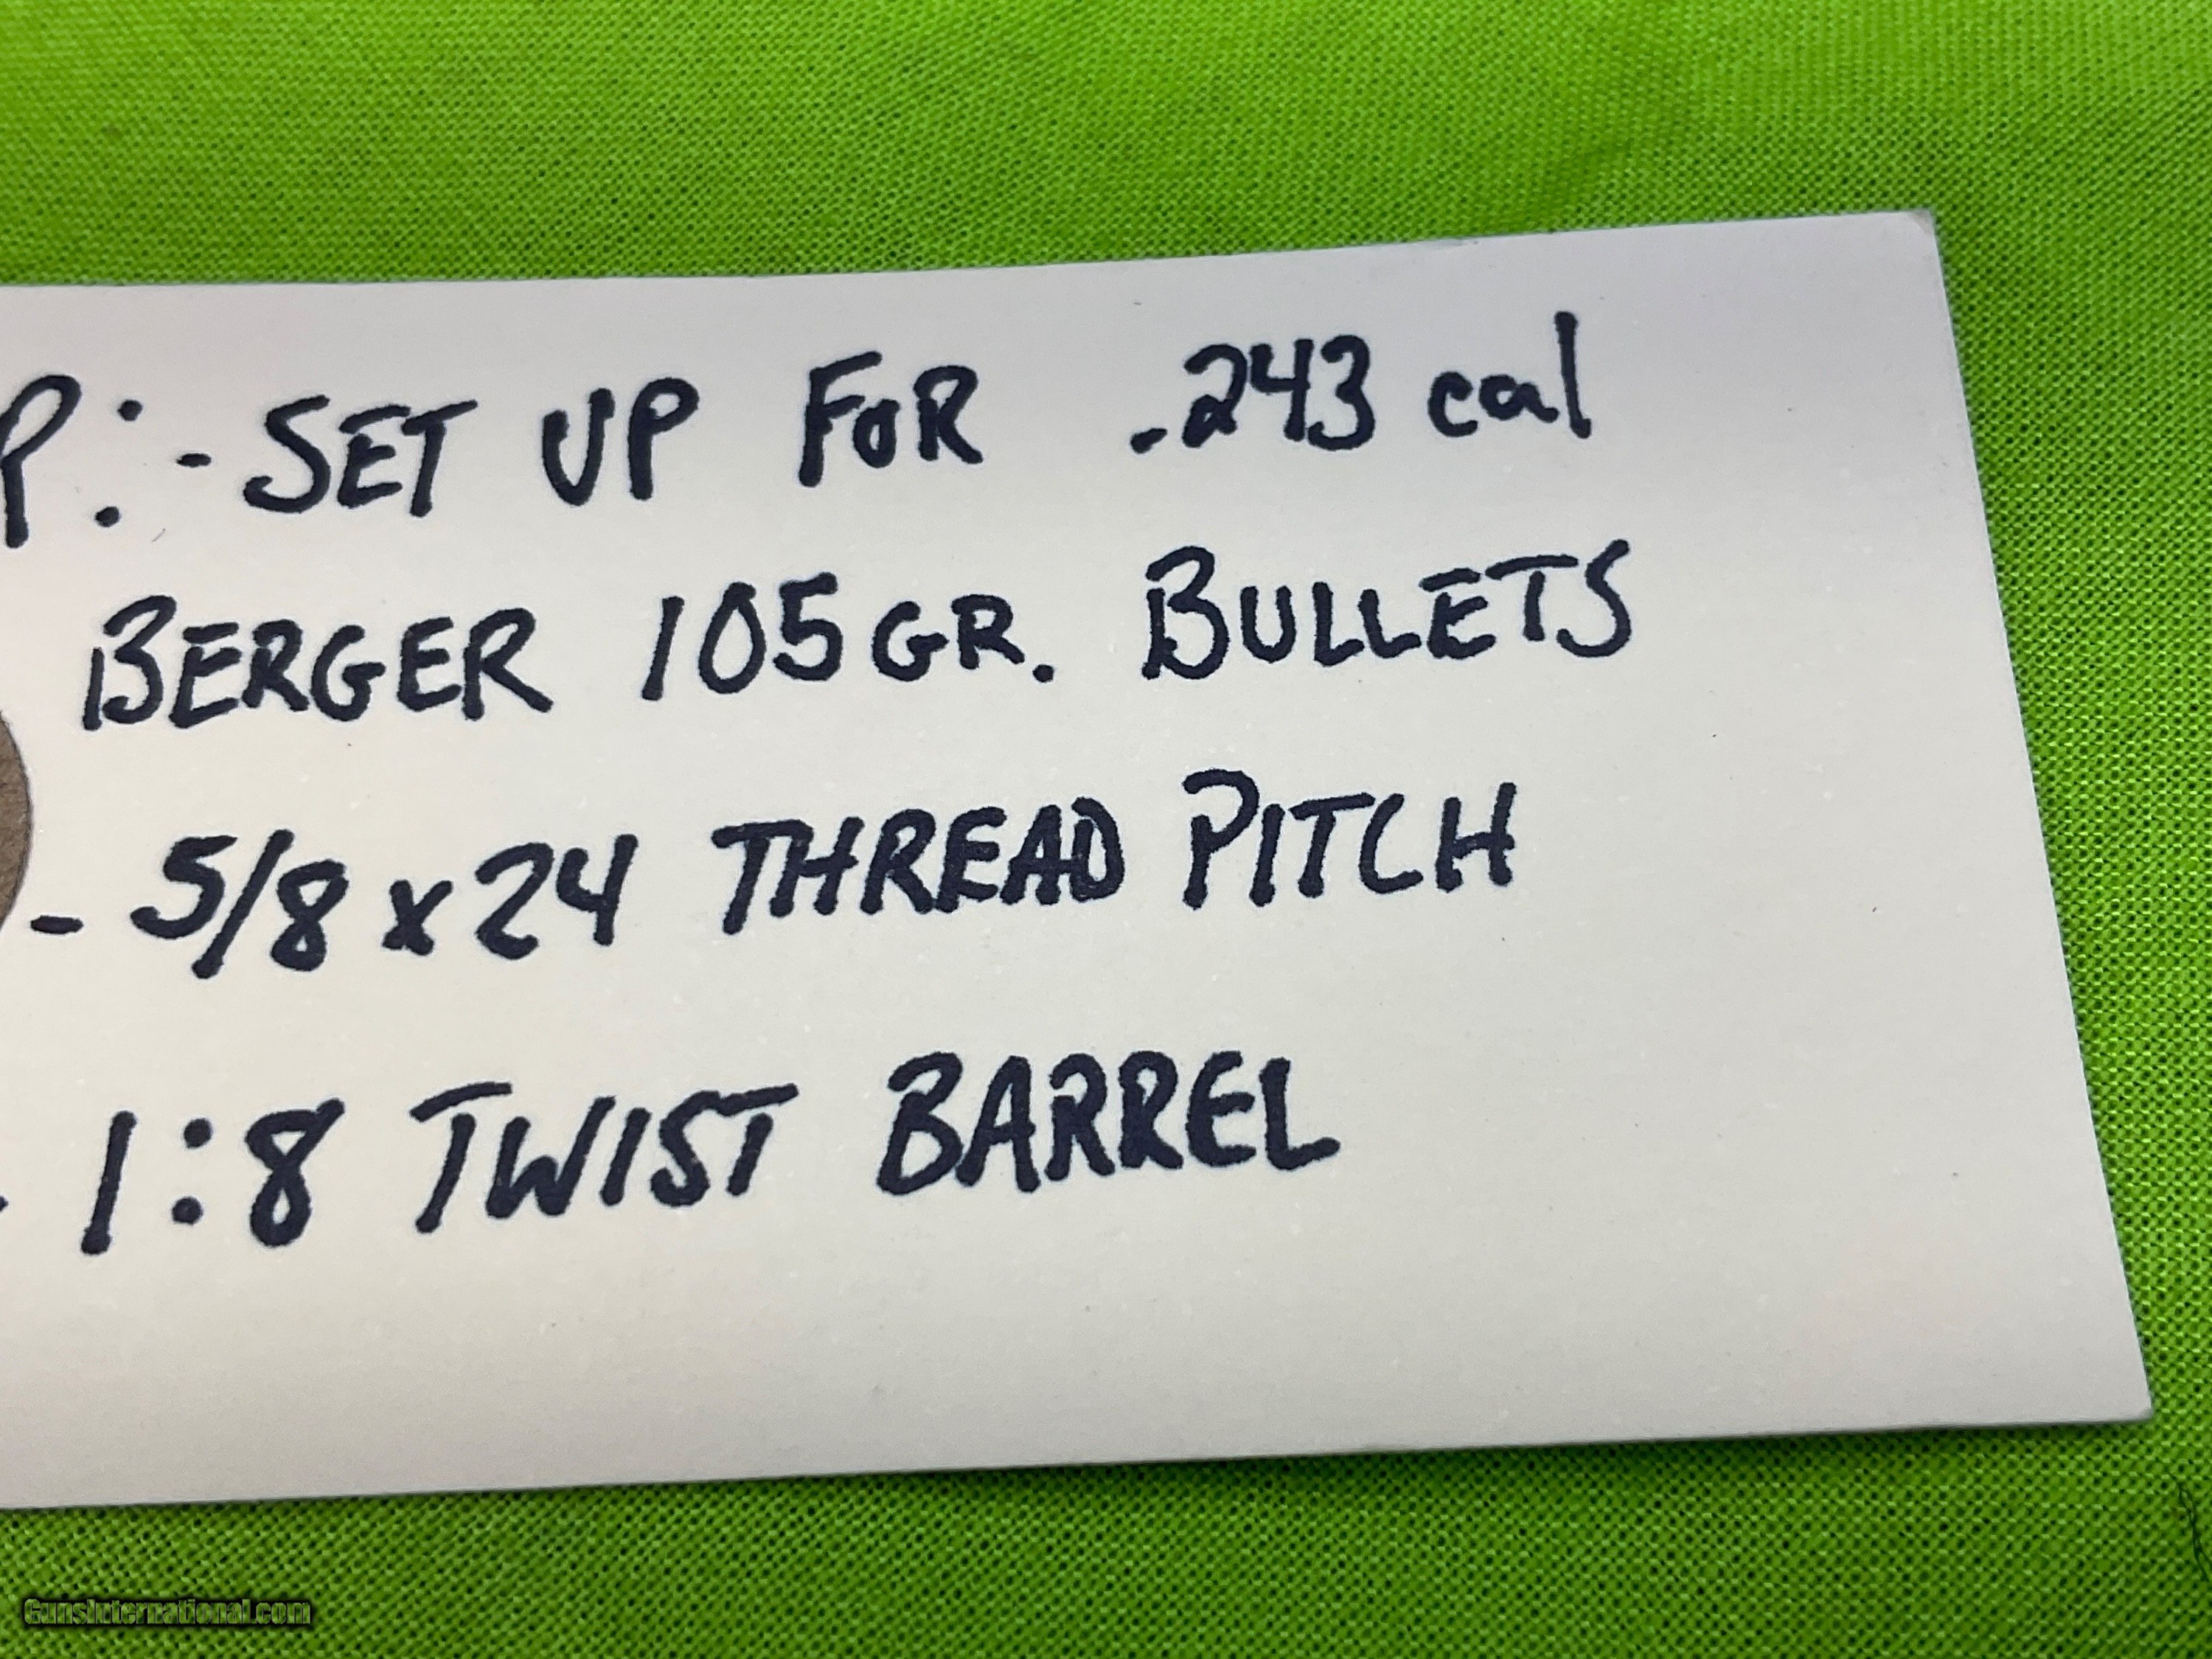 P:- SET UP FOR .243 cal
BERGER 105GR. BULLETS
- 5/8 x 24 THREAD PITCH
- 1:8 TWIST BARREL
GunsInternational.com